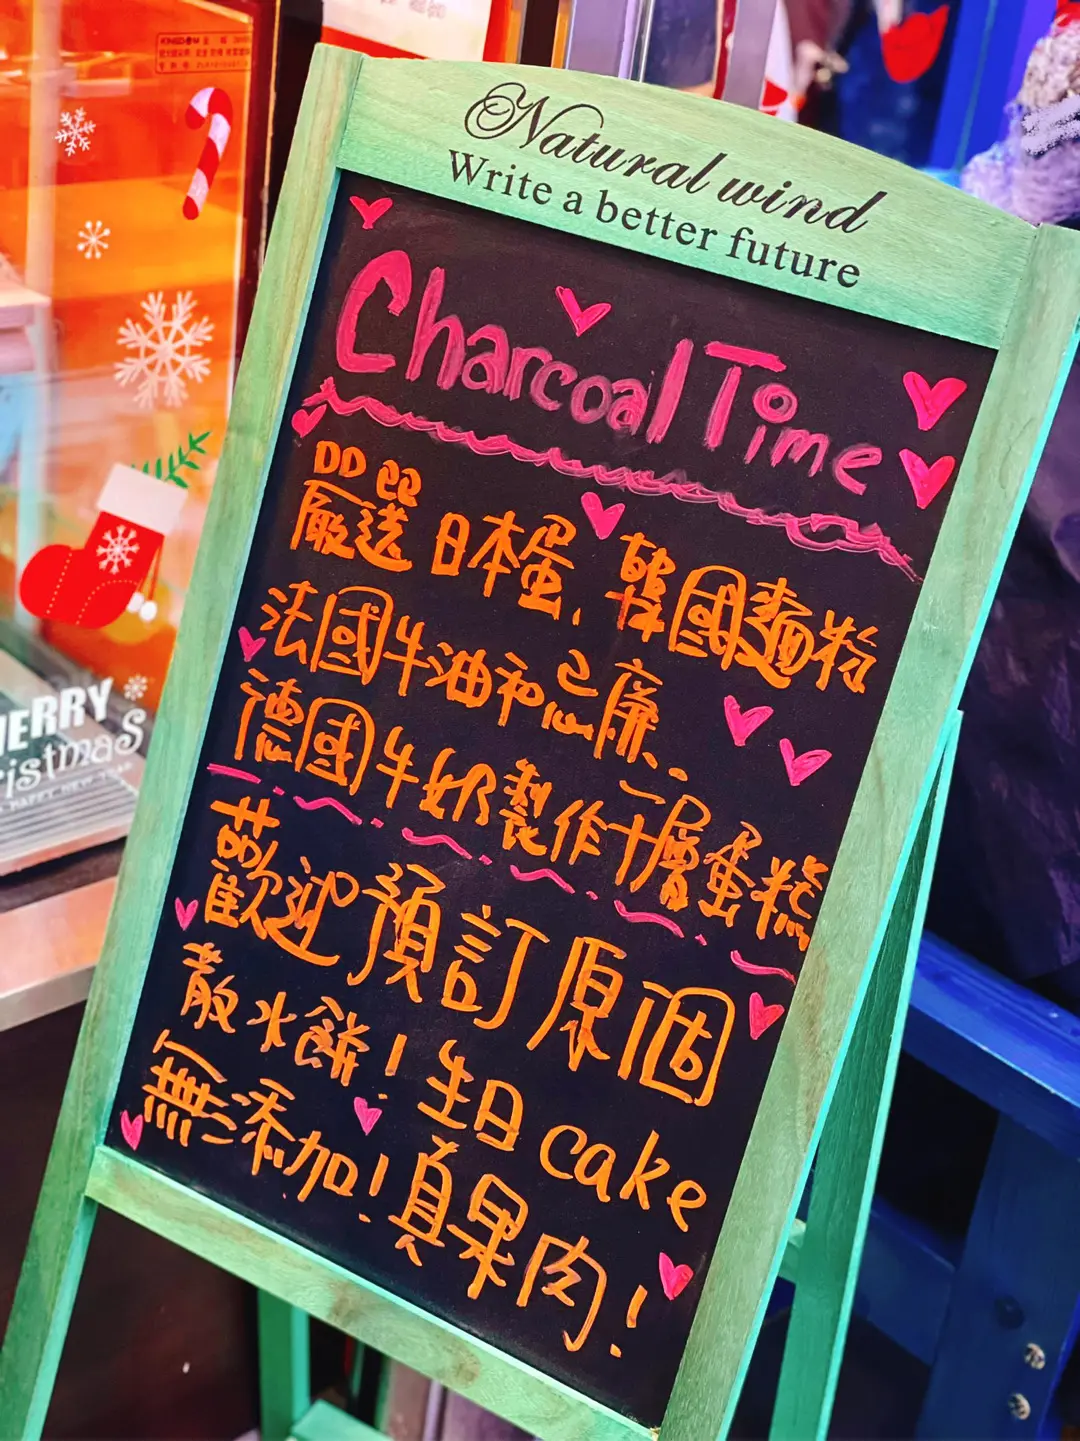 Natural wind
Write a better future
Charcoal Time
嚴選日本蛋、韓國麵粉
法國牛油和忌廉、
德國牛奶製作千層蛋糕
歡迎預訂原個
散水餅！生日cake
無添加！真果肉！
MERRY